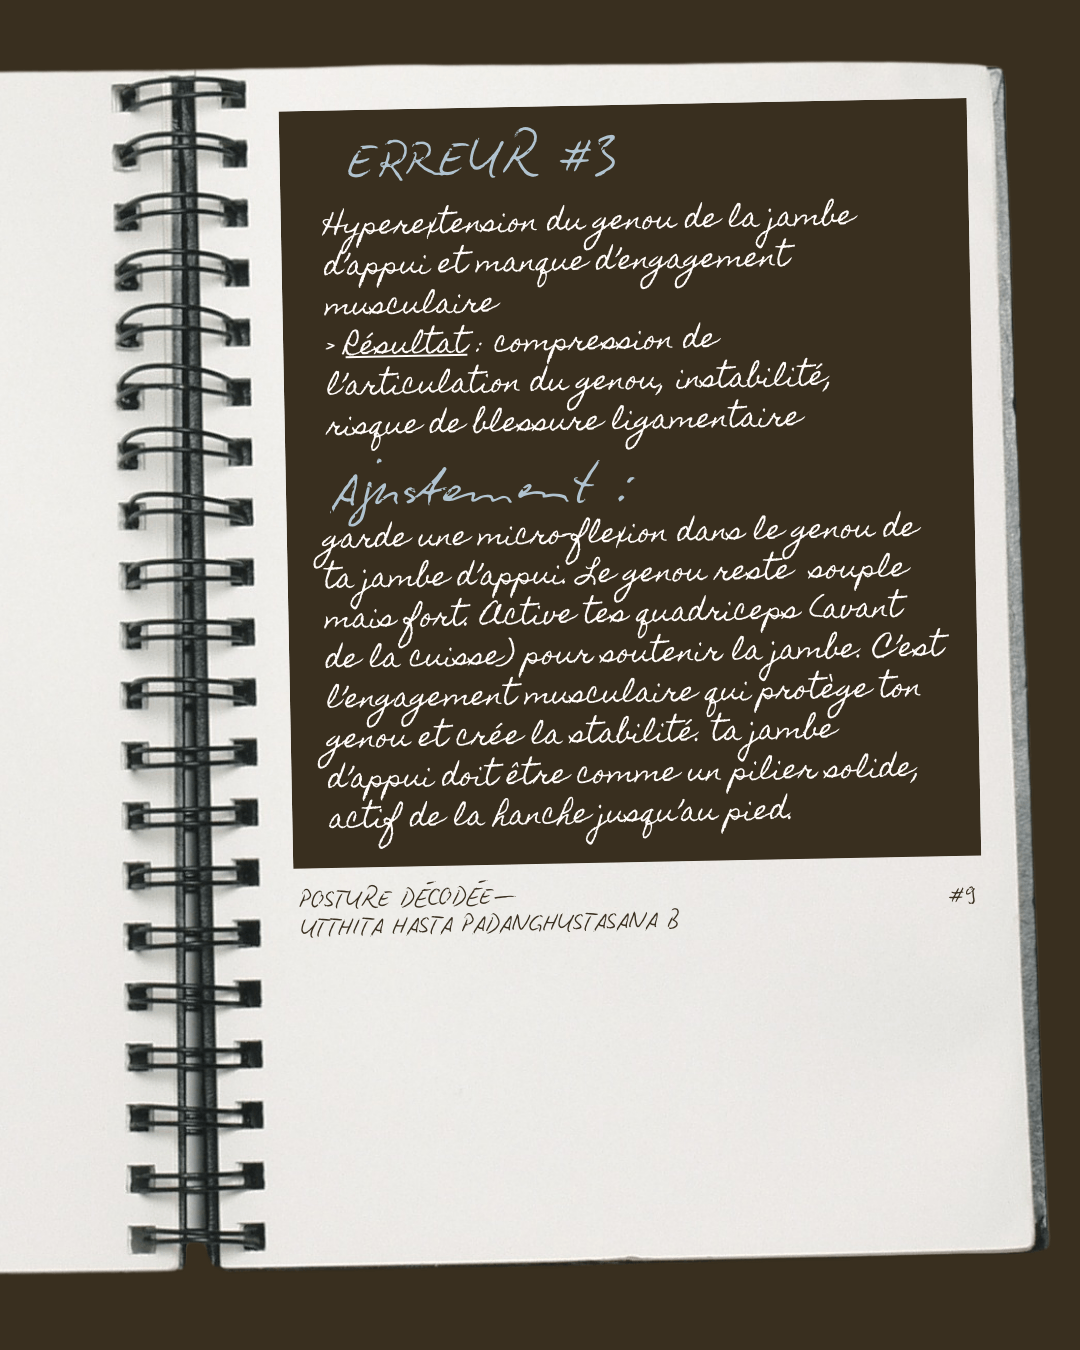 ERREUR #3
Hyperextension du genou de la jambe
d'appui et manque d'engagement
musculaire
> Résultat : compression de
l'articulation du genou, instabilité,
risque de blessure ligamentaire
Ajustement :
garde une micro-flexion dans le genou de
ta jambe d'appui. Le genou reste souple
mais fort. Active tes quadriceps (avant
de la cuisse) pour soutenir la jambe. C'est
l'engagement musculaire qui protège ton
genou et crée la stabilité. ta jambe
d'appui doit être comme un pilier solide,
actif de la hanche jusqu'au pied.
POSTURE DÉCODÉE— #9
UTTHITA HASTA PADANGHUSTASANA B